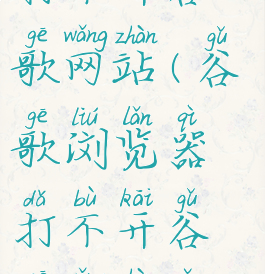 gē wǎng zhàn gǔ
歌网站(谷
gē liú lǎn qì
歌浏览器
dǎ bù kāi gǔ
打不开谷